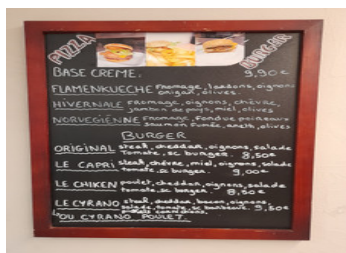 PIZZA
BURGER
BASE CREME. 9,90€
FLAMENKUECHE fromage, lardons, oignons
origan, olives.
HIVERNALE fromage, oignons, chèvre,
jambon de pays, miel, olives
NORVEGIENNE fromage, fondue poireaux
saumon fumée, aneth, olives
BURGER
ORIGINAL steak, cheddar, oignons, salade
tomate, sc burger. 8,50€
LE CAPRI steak, chèvre, miel, oignons, salade
tomate, sc burger. 9,00€
LE CHIKEN poulet, cheddar, oignons, salade
tomate, sc burger. 8,50€
LE CYRANO steak, cheddar, bacon, oignons,
salade, tomate, sc barbecue. 9,50€
OU CYRANO POULET.